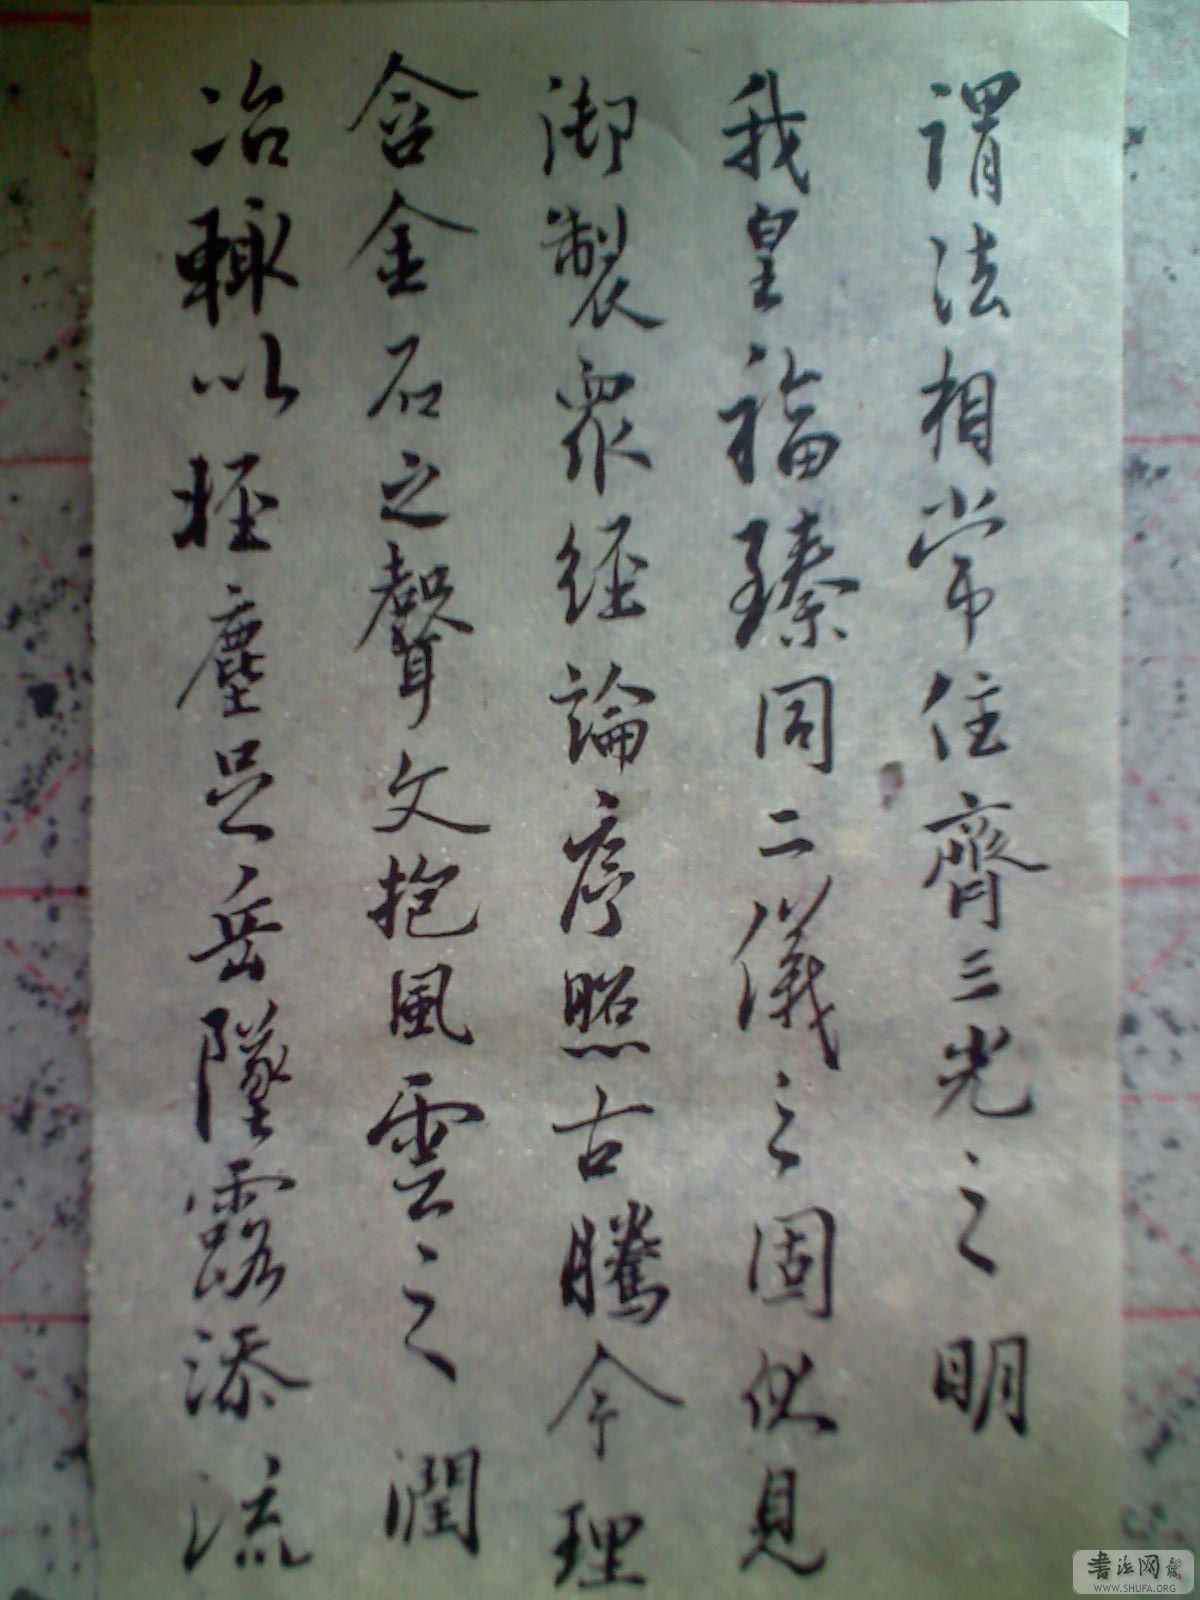 謂法相常住齊三光之明
我皇福臻同二儀之固伏見
御製眾經論序照古騰今理
含金石之聲文抱風雲之潤
冶輒以輕塵足岳墜露添流
書法网
WWW.SHUFA.ORG